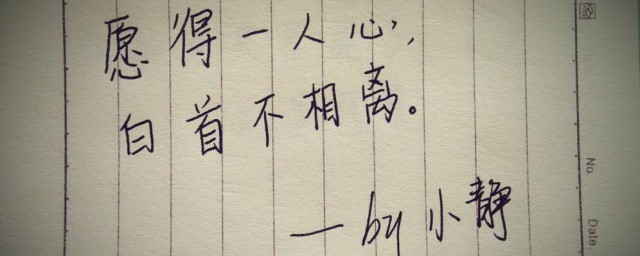 愿得一人心,
白首不相离。
—by小静
No.
Date.